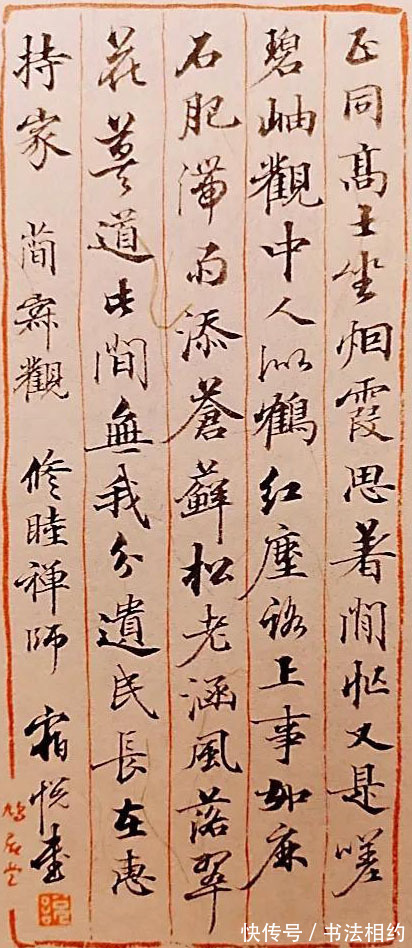 正同高士坐烟霞思著閒忙又是嗟
碧岫觀中人似鶴紅塵路上事如麻
石肥滯雨添蒼蘚松老涵風落翠
花莫道此間無我分遺民長在惠
持家 簡寂觀 修睦禪師 宿悦書
鳩居堂
快传号/书法相约